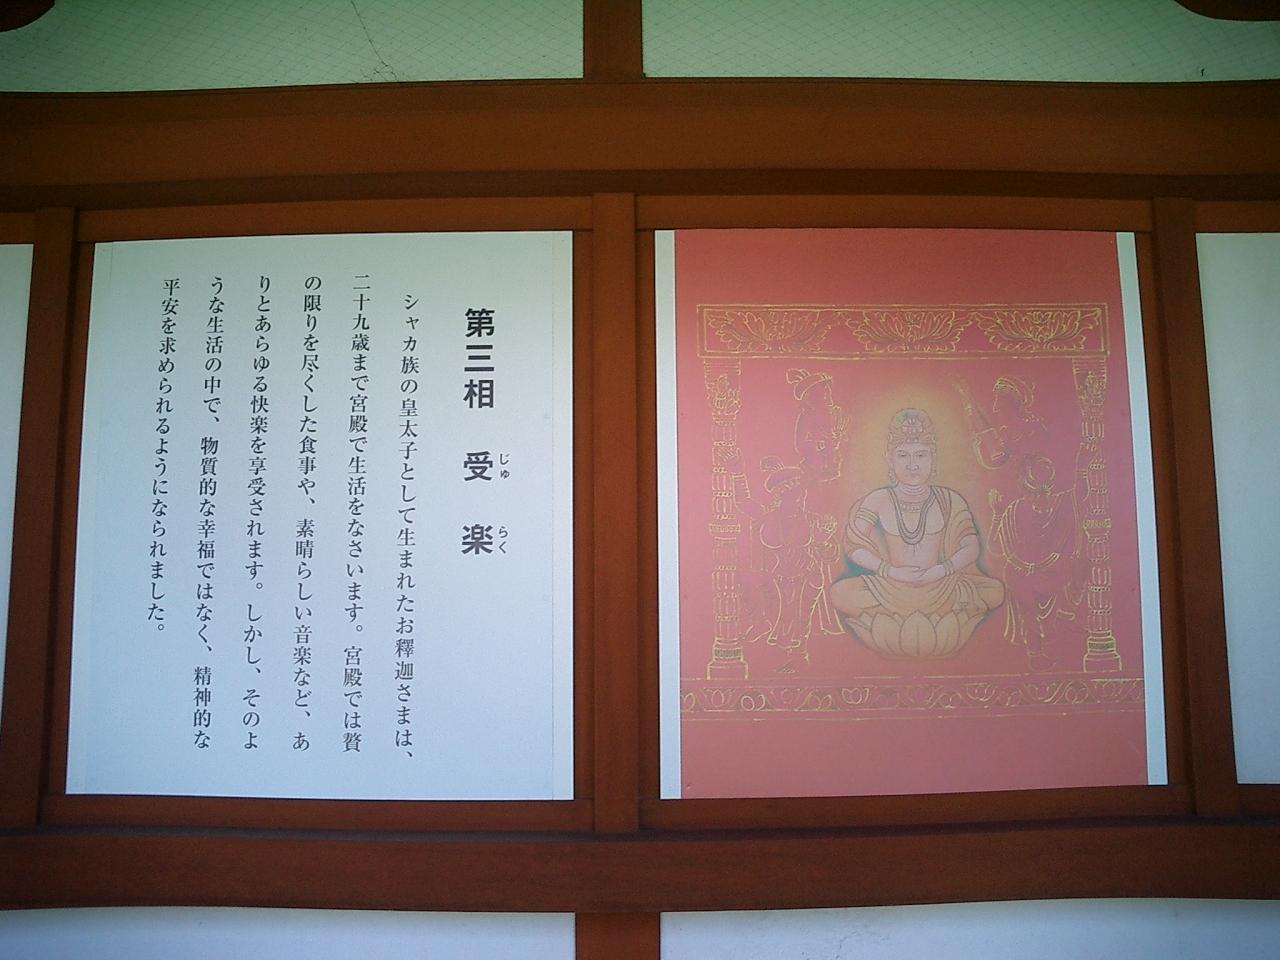 第三相 受楽
じゅ らく
シャカ族の皇太子として生まれたお釋迦さまは、
二十九歳まで宮殿で生活をなさいます。宮殿では贅
の限りを尽くした食事や、素晴らしい音楽など、あ
りとあらゆる快楽を享受されます。しかし、そのよ
うな生活の中で、物質的な幸福ではなく、精神的な
平安を求められるようになられました。